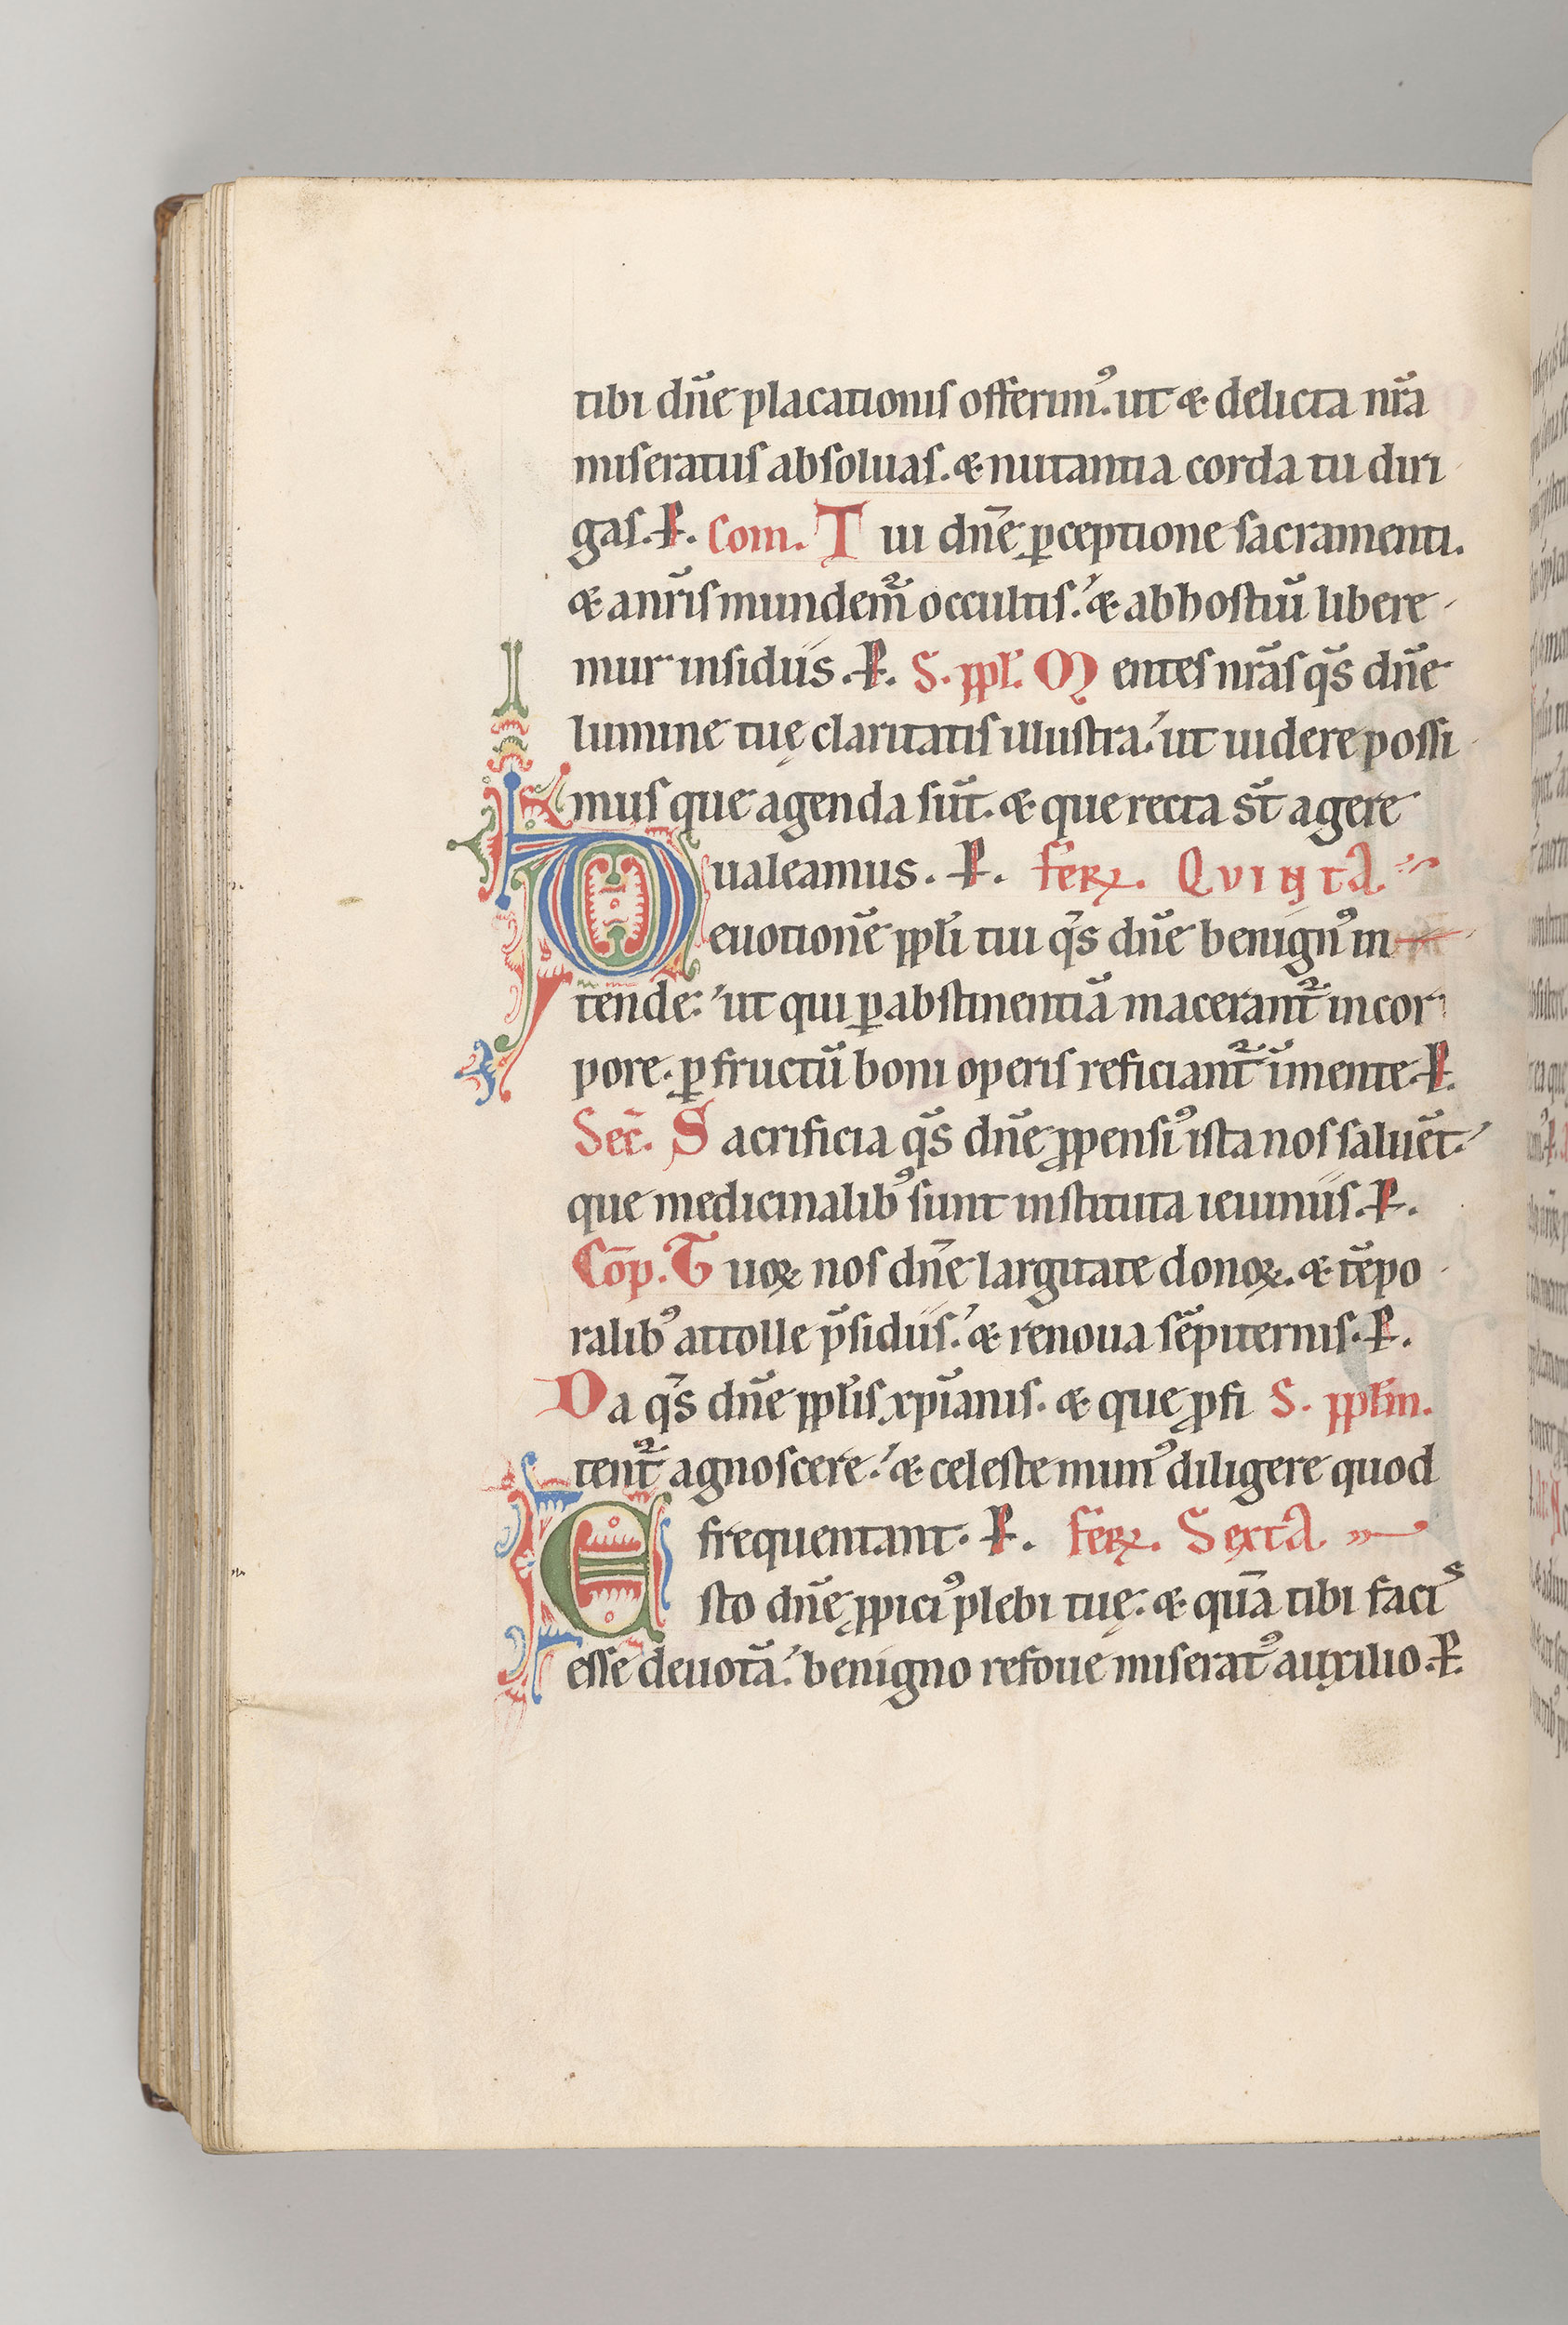 tibi dn̄e placationis offerim᷒. ut & delicta nr̄a
miseratus absoluas. & nutantia corda tu diri
gas. P. Com. Tui dn̄e ꝑceptione sacramenti.
& anr̄is mundem᷑ occultis. & ab hostiū libere
mur insidiis. P. S. ppl̄. Mentes nr̄as qs̄ dn̄e
lumine tuę claritatis illustra. ut uidere possi
mus que agenda sūt. & que recta st̄ agere
ualeamus. P. Feꝝ. Quinta.
Deuotionē ppl̄i tui qs̄ dn̄e benignꝰ in
tende: ut qui ꝑ abstinentiā macerant᷑ in cor
pore. ꝑ fructū boni operis reficiant᷑ īmente. P.
Sec̄. Sacrificia qs̄ dn̄e ꝓpensiꝰ ista nos saluēt.
que medicinalibꝰ sunt instituta ieiuniis. P.
Cōp. Tuoꝝ nos dn̄e largitate donoꝝ. & tēpo
ralibꝰ attolle p̄sidiis. & renoua sēpiternis. P.
Da qs̄ dn̄e ppl̄is xp̄ianis. & que ꝓfi S. ppl̄m.
tent᷑ agnoscere. & celeste munꝰ diligere quod
frequentant. P. Feꝝ. Sexta
Esto dn̄e ꝓpiciꝰ plebi tuę. & quā tibi facis
esse deuotā. benigno refoue miseratꝰ auxilio. P.